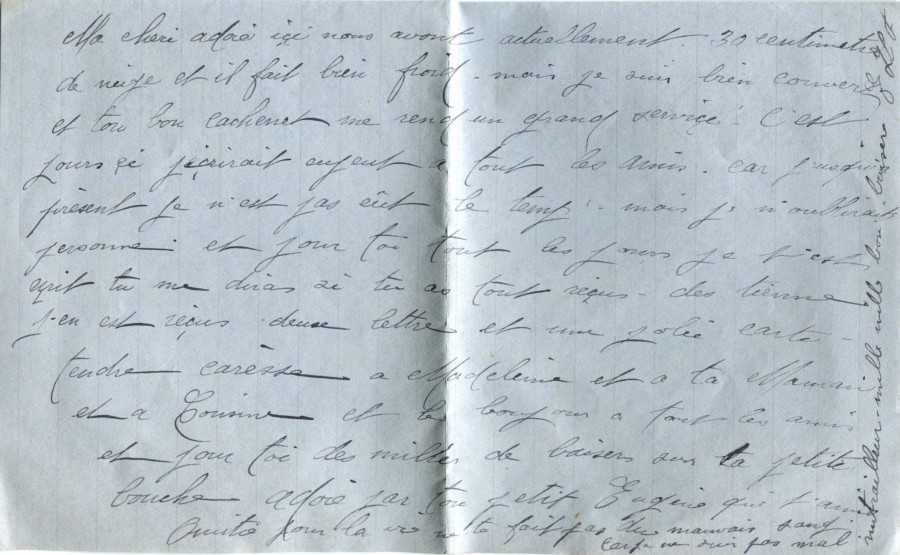 Ma cheri adoré içi nous avont actuellement. 30 centimetre
de neige et il fait bien froid. mais je suis bien couver
et ton bon cachenet me rend un grand service. C'est
jours çi j'écrirait a tout les amis. car jusqu'
présent je n'est pas eût le temp. mais je n'oublirait
personne. et pour toi tout les jours je t'est
écrit tu me diras si tu as tout reçus. des tienne
j'en est reçus deuse lettre et une jolie carte
tendre carèsse a Madeleine et a ta Maman
et a Cousine et le bonjour a tout les amis
et pour toi des milles de baisers sur ta petite
bouche adoré par ton petit Eugène qui t'aime
Amitié pour la vie ne te fait pas du mauvais sang
car je ne suis pas mal
mitrailleur mille mille bon baisers